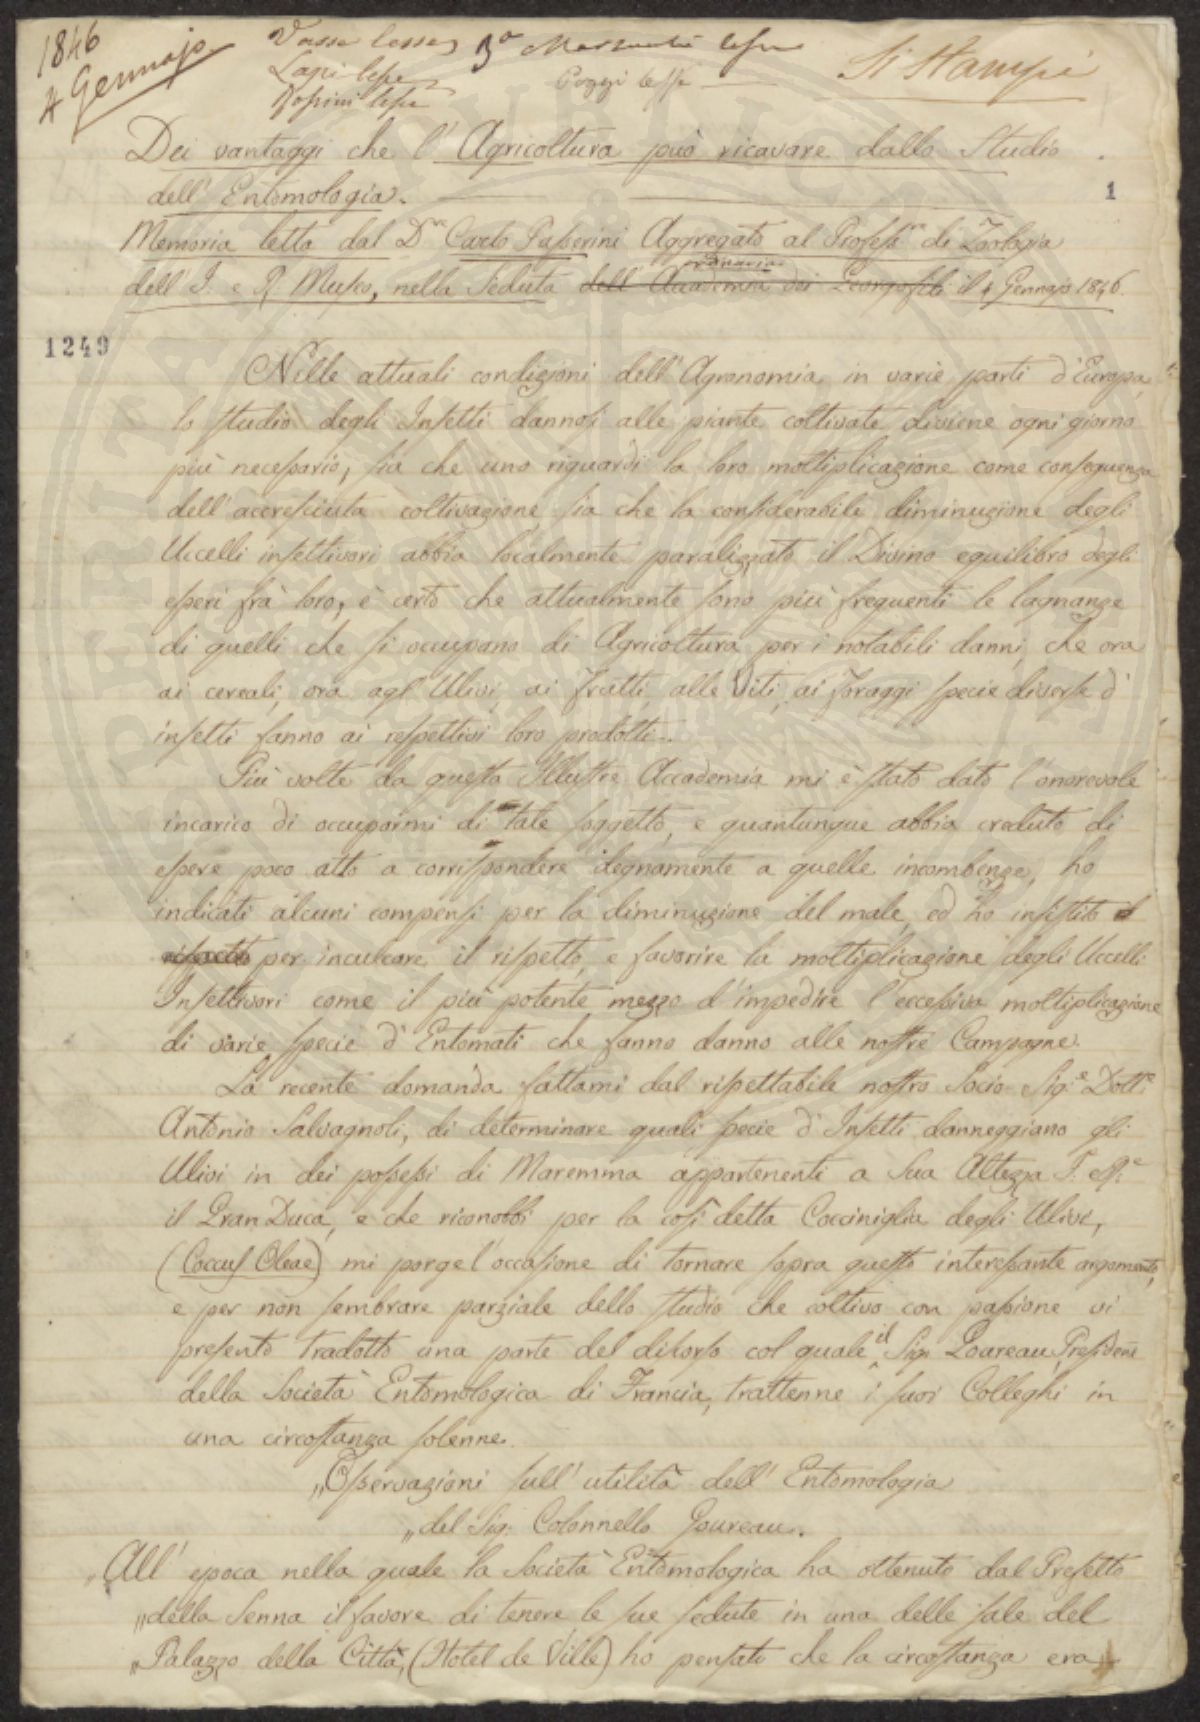 1846
4 Gennajo
Lapi lesse
Poggi lesse
Si Stampi
Dei vantaggi che l'Agricoltura può ricavare dallo Studio
dell'Entomologia.
1
Memoria letta dal Dre Carlo Passerini Aggregato al Profess.re di Zoologia
ordinaria
dell'I. e R. Museo, nella Seduta dell'Accademia dei Georgofili il 4 Gennajo 1846.
1249
Nelle attuali condizioni dell'Agronomia in varie parti d'Europa,
lo studio degli Insetti dannosi alle piante coltivate diviene ogni giorno
più necessario, sia che uno riguardi la loro moltiplicazione come conseguenza
dell'accresciuta coltivazione sia che la considerabile diminuzione degli
Uccelli insettivori abbia localmente paralizzato il Divino equilibro degli
esseri frà loro, è certo che attualmente sono più frequenti le lagnanze
di quelli che si occupano di Agricoltura per i notabili danni, che ora
ai cereali, ora agl'Ulivi, ai frutti, alle Viti, ai foraggi specie diverse d'
insetti fanno ai respettivi loro prodotti.
Più volte da questa Illustre Accademia mi è stato dato l'onorevole
incarico di occuparmi di tale soggetto, e quantunque abbia creduto di
essere poco atto a corrispondere degnamente a quelle incombenze, ho
indicati alcuni compensi per la diminuzione del male, ed ho insistito il
rispetto per inculcare il rispetto, e favorire la moltiplicazione degli Uccelli
Insettivori come il più potente mezzo d'impedire l'eccessiva moltiplicazione
di varie specie d'Entomati che fanno danno alle nostre Campagne.
La recente domanda fattami dal rispettabile nostro Socio Sig.e Dott.e
Antonio Salvagnoli, di determinare quali specie d'Insetti danneggiano gli
Ulivi in dei possessi di Maremma appartenenti a Sua Altezza I. e R.e
il Gran Duca, e che riconobbi per la così detta Cocciniglia degli Ulivi,
(Coccus Oleae) mi porge l'occasione di tornare sopra questo interessante argomento,
e per non sembrare parziale dello studio che coltivo con passione vi
presento tradotto una parte del discorso col quale il Sig. Goureau, Presidente
della Società Entomologica di Francia, trattenne i suoi Colleghi in
una circostanza solenne.
„Osservazioni sull'utilità dell'Entomologia
„del Sig. Colonnello Goureau.
„All'epoca nella quale la Società Entomologica ha ottenuto dal Prefetto
„della Senna il favore di tenere le sue sedute in una delle sale del
„Palazzo della Città, (Hotel de Ville) ho pensato che la circostanza era